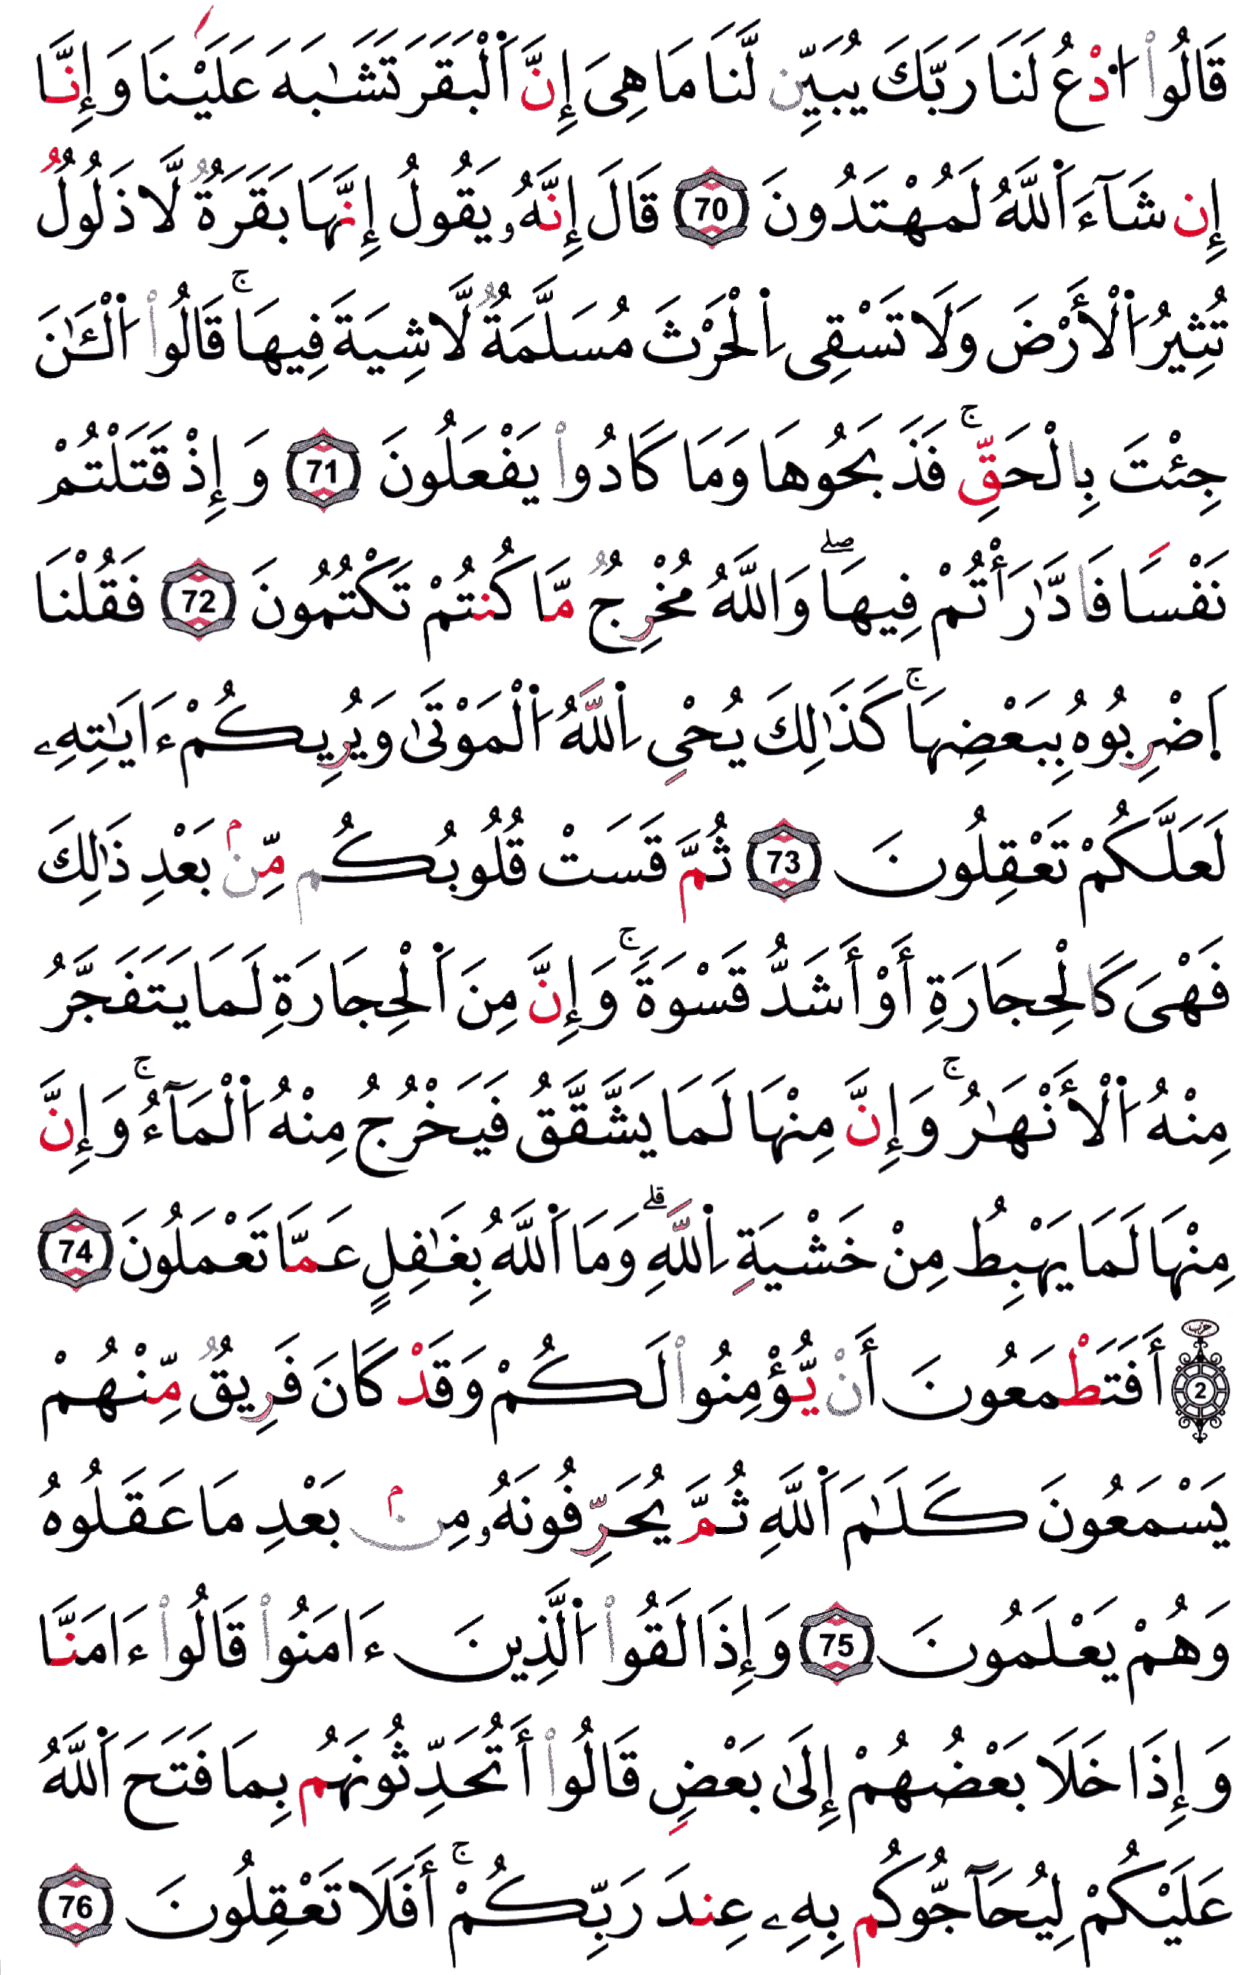 قَالُوا۟ ا۟دْعُ لَنَا رَبَّكَ يُبَيِّن لَّنَا مَا هِىَ إِنَّ اَ۬لْبَقَرَ تَشَٰبَهَ عَلَيْنَا وَإِنَّا
إِن شَآءَ اَ۬للَّهُ لَمُهْتَدُونَ 70 قَالَ إِنَّهُۥ يَقُولُ إِنَّهَا بَقَرَةٌ لَّا ذَلُولٌ
تُثِيرُ اُ۬لْأَرْضَ وَلَا تَسْقِى اِ۬لْحَرْثَ مُسَلَّمَةٌ لَّا شِيَةَ فِيهَا ۚ قَالُوا۟ اُ۬لْـَٰٔنَ
جِئْتَ بِالْحَقِّ ۚ فَذَبَحُوهَا وَمَا كَادُوا۟ يَفْعَلُونَ 71 وَإِذْ قَتَلْتُمْ
نَفْسًا فَادَّٰرَأْتُمْ فِيهَا ۖ وَاللَّهُ مُخْرِجٌ مَّا كُنتُمْ تَكْتُمُونَ 72 فَقُلْنَا
اَ۪ضْرِبُوهُ بِبَعْضِهَا ۚ كَذَٰلِكَ يُحْىِ اِ۬للَّهُ اُ۬لْمَوْتَىٰ وَيُرِيكُمْ ءَايَٰتِهِۦ
لَعَلَّكُمْ تَعْقِلُونَ 73 ثُمَّ قَسَتْ قُلُوبُكُم مِّنۢ بَعْدِ ذَٰلِكَ
فَهْىَ كَالْحِجَارَةِ أَوْ أَشَدُّ قَسْوَةً ۚ وَإِنَّ مِنَ اَ۬لْحِجَارَةِ لَمَا يَتَفَجَّرُ
مِنْهُ اُ۬لْأَنْهَٰرُ ۚ وَإِنَّ مِنْهَا لَمَا يَشَّقَّقُ فَيَخْرُجُ مِنْهُ اُ۬لْمَآءُ ۚ وَإِنَّ
مِنْهَا لَمَا يَهْبِطُ مِنْ خَشْيَةِ اِ۬للَّهِ ۗ وَمَا اَ۬للَّهُ بِغَٰفِلٍ عَمَّا تَعْمَلُونَ 74
حزب 2 أَفَتَطْمَعُونَ أَنْ يُّؤْمِنُوا۟ لَكُمْ وَقَدْ كَانَ فَرِيقٌ مِّنْهُمْ
يَسْمَعُونَ كَلَٰمَ اَ۬للَّهِ ثُمَّ يُحَرِّفُونَهُۥ مِنۢ بَعْدِ مَا عَقَلُوهُ
وَهُمْ يَعْلَمُونَ 75 وَإِذَا لَقُوا۟ اُ۬لَّذِينَ ءَامَنُوا۟ قَالُوا۟ ءَامَنَّا
وَإِذَا خَلَا بَعْضُهُمْ إِلَىٰ بَعْضٍ قَالُوا۟ أَتُحَدِّثُونَهُم بِمَا فَتَحَ اَ۬للَّهُ
عَلَيْكُمْ لِيُحَآجُّوكُم بِهِۦ عِندَ رَبِّكُمْ ۚ أَفَلَا تَعْقِلُونَ 76